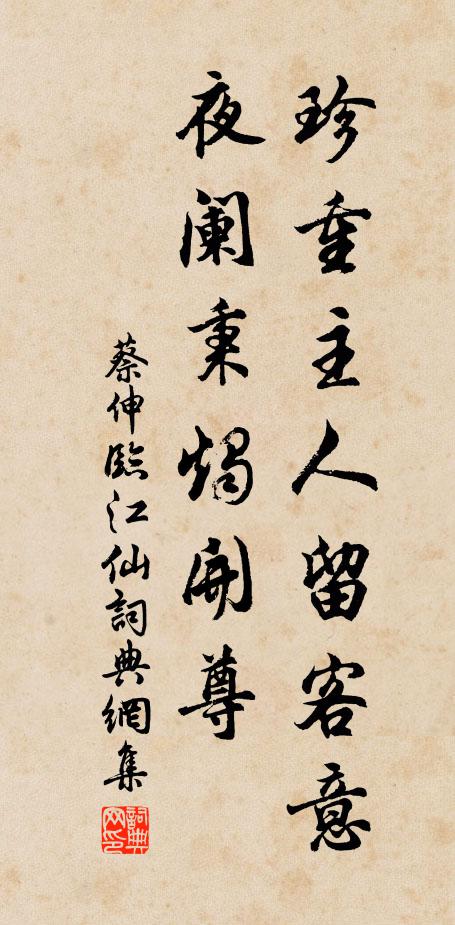 珍重主人留客意
夜阑秉燭開尊
蔡伸臨江仙詞典網集
詞典网印